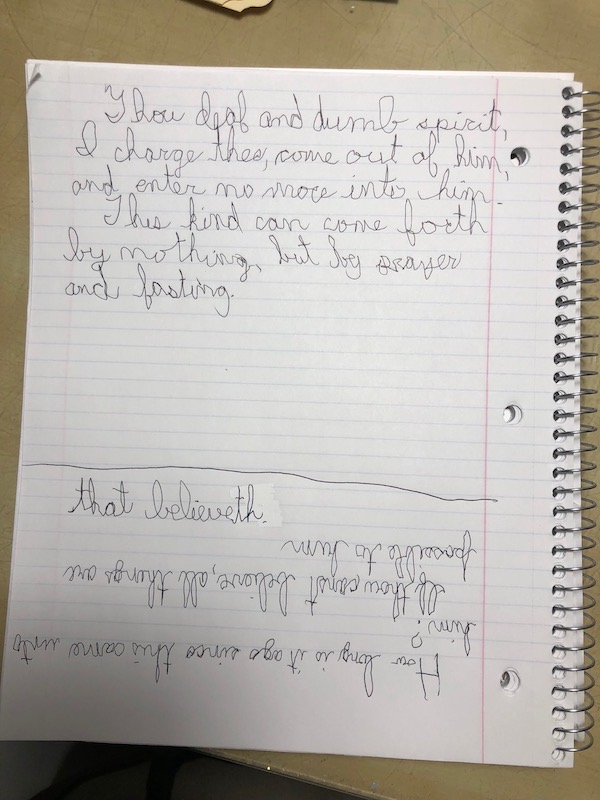 Thou deaf and dumb spirit,
I charge thee, come out of him,
and enter no more into him.
This kind can come forth
by nothing, but by prayer
and fasting.
How long is it ago since this came into
him?
If thou canst believe, all things are
possible to him
that believeth.